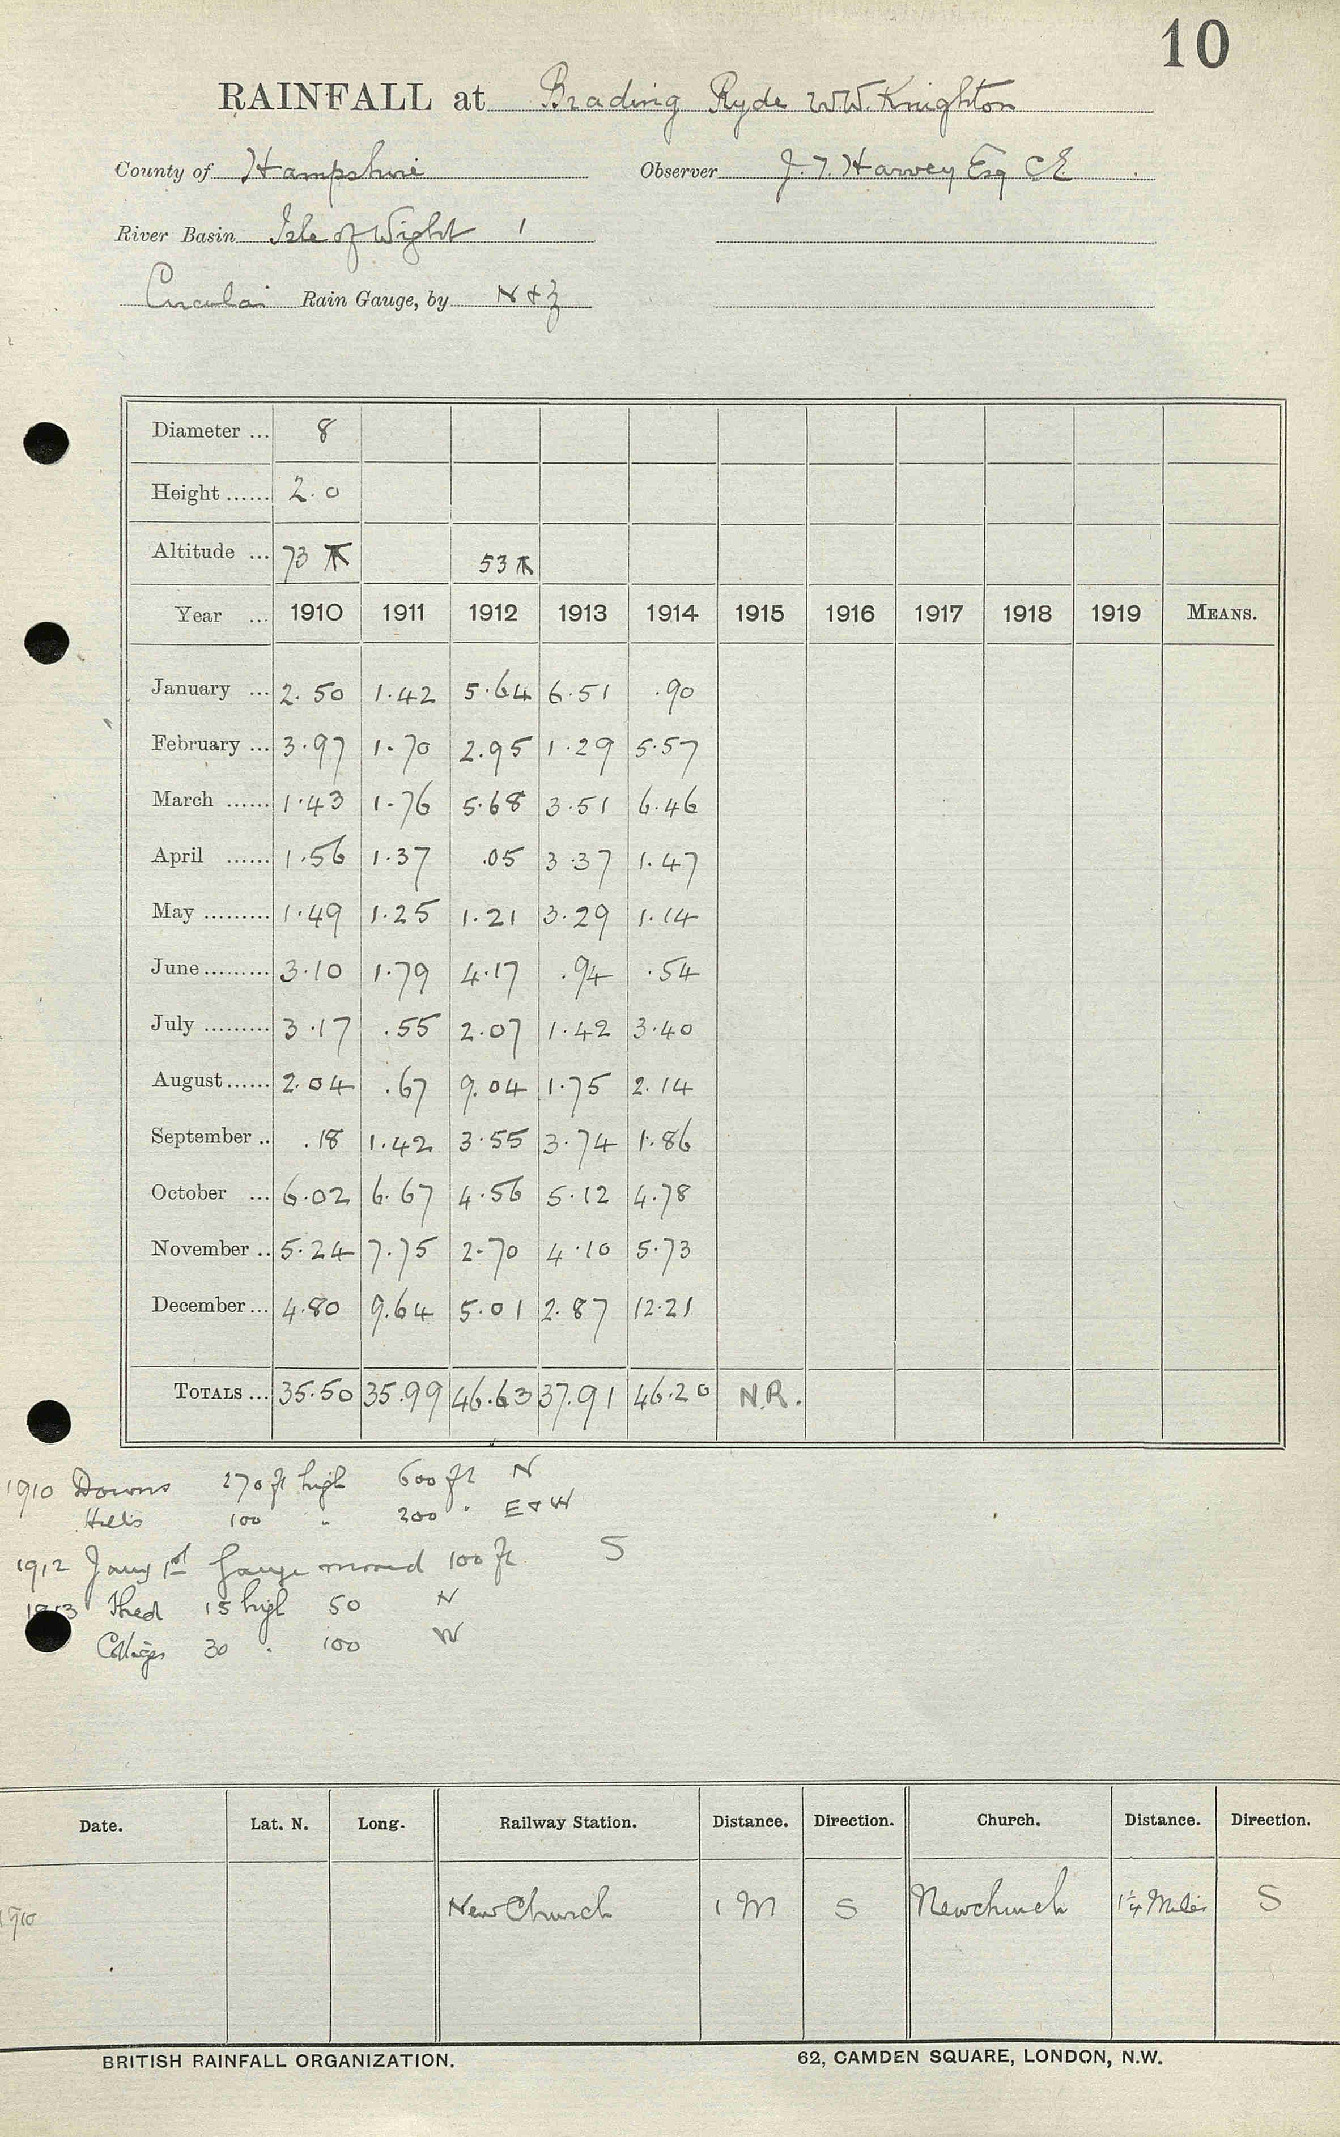 10
RAINFALL at Brading Ryde WW. Knighton
County of Hampshire Observer J. T. Harvey Esq CE
River Basin Isle of Wight 1
Circular Rain Gauge, by N & Z
Diameter ... 8
Height ...... 2.0
Altitude ... 73 53
Year ... 1910 1911 1912 1913 1914 1915 1916 1917 1918 1919 MEANS.
January ... 2.50 1.42 5.64 6.51 .90
February ... 3.97 1.70 2.95 1.29 5.57
March ...... 1.43 1.76 5.68 3.51 6.46
April ...... 1.56 1.37 .05 3.37 1.47
May ......... 1.49 1.25 1.21 3.29 1.14
June ......... 3.10 1.79 4.17 .94 .54
July ......... 3.17 .55 2.07 1.42 3.40
August ...... 2.04 .67 9.04 1.75 2.14
September .. .18 1.42 3.55 3.74 1.86
October ... 6.02 6.67 4.56 5.12 4.78
November .. 5.24 7.75 2.70 4.10 5.73
December ... 4.80 9.64 5.01 2.87 12.21
TOTALS ... 35.50 35.99 46.63 37.91 46.20 N.R.
1910 Downs 270 ft high 600 ft N
Hills 100 " 200 " E & W
1912 Jany 1st Gauge moved 100 ft S
1913 Shed 15 high 50 N
Cottages 30 " 100 W
Date. Lat. N. Long. Railway Station. Distance. Direction. Church. Distance. Direction.
1910 NewChurch 1 M S Newchurch 1¼ Miles S
BRITISH RAINFALL ORGANIZATION. 62, CAMDEN SQUARE, LONDON, N.W.